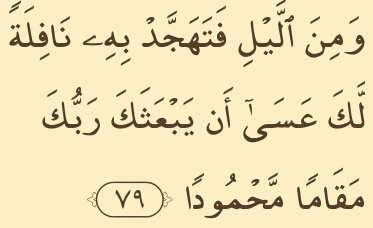 وَمِنَ ٱلَّيْلِ فَتَهَجَّدْ بِهِۦ نَافِلَةً
لَّكَ عَسَىٰٓ أَن يَبْعَثَكَ رَبُّكَ
مَقَامًا مَّحْمُودًا ٧٩